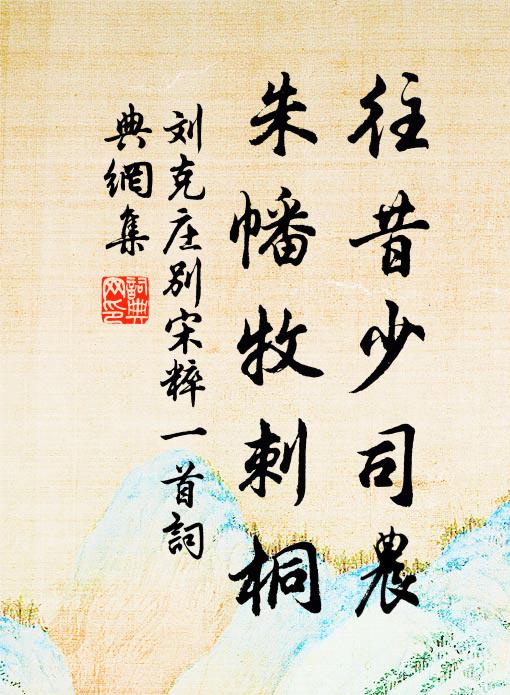 往昔少司農
朱幡牧刺桐
刘克庄别宋粹一首詞
典網集
詞典網印